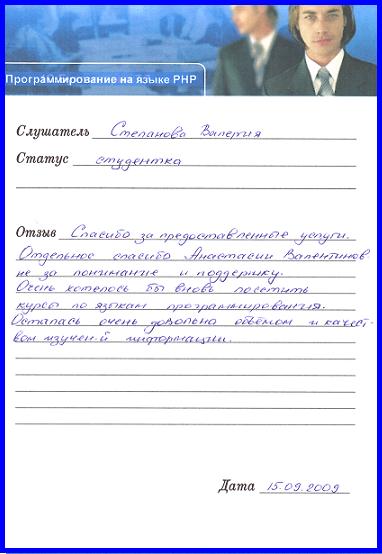 Программирование на языке PHP
Слушатель Степанова Валерия
Статус студентка
Отзыв Спасибо за предоставленные услуги.
Отдельное спасибо Анастасии Валентинов-
не за понимание и поддержку.
Очень хотелось бы вновь посетить
курсы по языкам программирования.
Осталась очень довольна объёмом и качест-
вом изучен-й информации.
Дата 15.09.2009